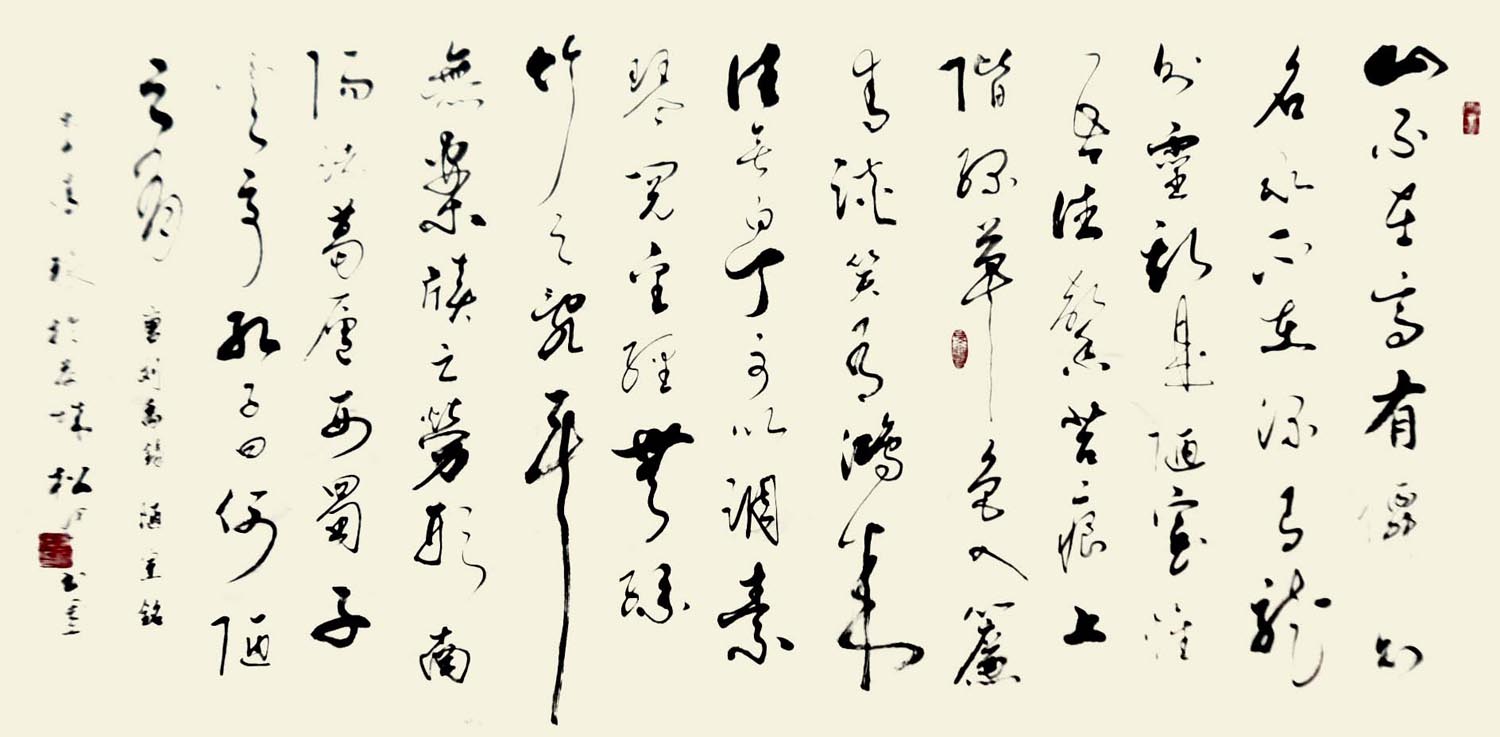 山不在高有僊則
名水不在深有龍
則靈斯是陋室惟
吾德馨苔痕上
階綠草色入簾
青談笑有鴻来
往無白丁可以調素
琴閱金經無絲
竹之亂耳
無案牘之勞形南
陽諸葛廬西蜀子
雲亭孔子曰何陋
之有
唐刘禹錫陋室銘
於 城松